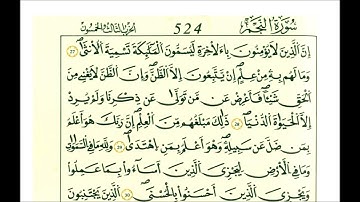 سُورَةُ النَّجْمِ 524 الحزب الثالث والخمسون
إِنَّ الَّذِينَ لَا يُؤْمِنُونَ بِالَاخِرَةِ لَيُسَمُّونَ الْمَلَٰٓئِكَةَ تَسْمِيَةَ الُانْثَىٰ ٢٧
وَمَا لَهُم بِهِ مِنْ عِلْمٍ اِنْ يَّتَّبِعُونَ إِلَّا الظَّنَّ وَإِنَّ الظَّنَّ لَا يُغْنِے مِنَ
الْحَقِّ شَيْـٔاً فَأَعْرِضْ عَن مَّن تَوَلَّىٰ عَن ذِكْرِنَا وَلَمْ يُرِدِ
اِلَّا الْحَيَوٰةَ الدُّنْيَا ٢٨ ذَٰلِكَ مَبْلَغُهُم مِّنَ الْعِلْمِ إِنَّ رَبَّكَ هُوَ أَعْلَمُ
بِمَن ضَلَّ عَن سَبِيلِهِ وَهُوَ أَعْلَمُ بِمَنِ اِهْتَدَىٰ ٢٩ وَلِلهِ مَا فِے السَّمَٰوَٰتِ
وَمَا فِے الَارْضِ لِيَجْزِيَ الَّذِينَ أَسَٰٓـُٔواْ بِمَا عَمِلُواْ
وَيَجْزِيَ الَّذِينَ أَحْسَنُواْ بِالْحُسْنَى ٣٠ اَلَّذِينَ يَجْتَنِبُونَ